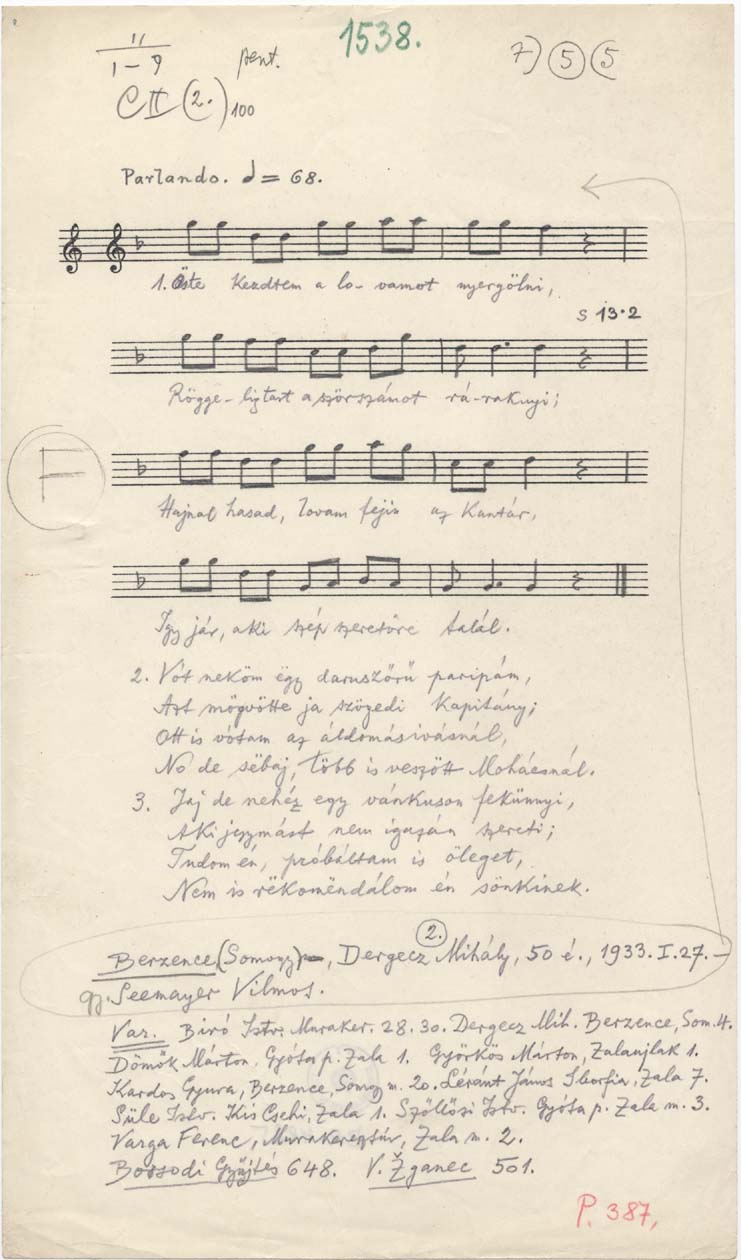 1538.
11
1–9
pent.
7) (5) (5
C II (2.) 100
Parlando. = 68.
1. Este kezdtem a lo- vamot nyergölni,
S 13·2
Rögge- ligtart a szörszámot rá-raknyi;
F
Hajnal hasad, lovam fején az kantár,
Így jár, aki szép szeretőre talál.
2. Vót neköm ëgy daruszőrű paripám,
Azt mögvötte ja szögedi kapitány;
Ott is vótam az áldomásivásnál,
No de sëbaj, több is veszött Mohácsnál.
3. Jaj de nehéz egy vánkuson fekünnyi,
Aki jegymást nem igazán szereti;
Tudom én, próbáltam is öleget,
Nem is rëkomëndálom én sönkinek.
2.
Berzence (Somogy), Dergecz Mihály, 50 é., 1933. I. 27.
gy. Seemayer Vilmos.
Var. Biró Istv. Muraker. 28. 30. Dergecz Mih. Berzence, Som. 4.
Dömök Márton. Gyóta p. Zala 1. Györkös Márton, Zalaujlak 1.
Kardos Gyura, Berzence, Somogy m. 20. Léránt János Iborfia, Zala 7.
Süle Istv. Kis Csehi, Zala 1. Szöllősi Istv. Gyóta p. Zala m. 3.
Varga Ferenc, Murakeresztúr, Zala m. 2.
Borsodi Gyűjtés 648. V. Žganec 501.
P. 387,